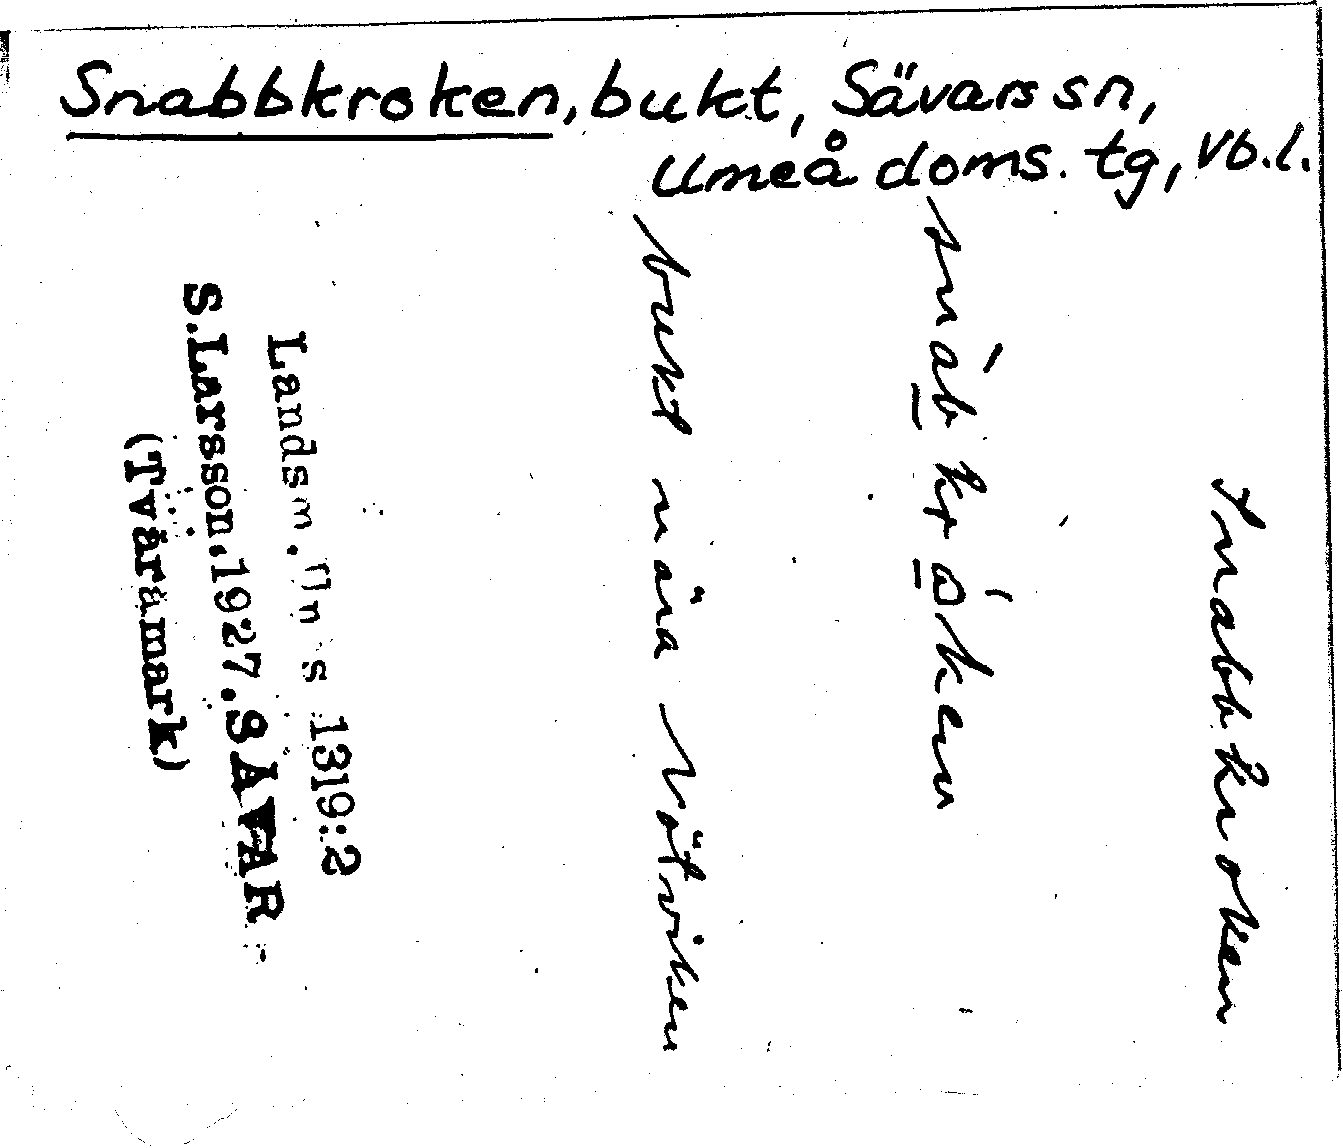 Snabbkroken, bukt, Sävars sn,
Umeå doms. tg, Vb.l.
Snabbkroken
bukt nära Nötviken
Landsm.
s 1319:2
S.Larsson.1927.SÄVAR
(Tväråmark)